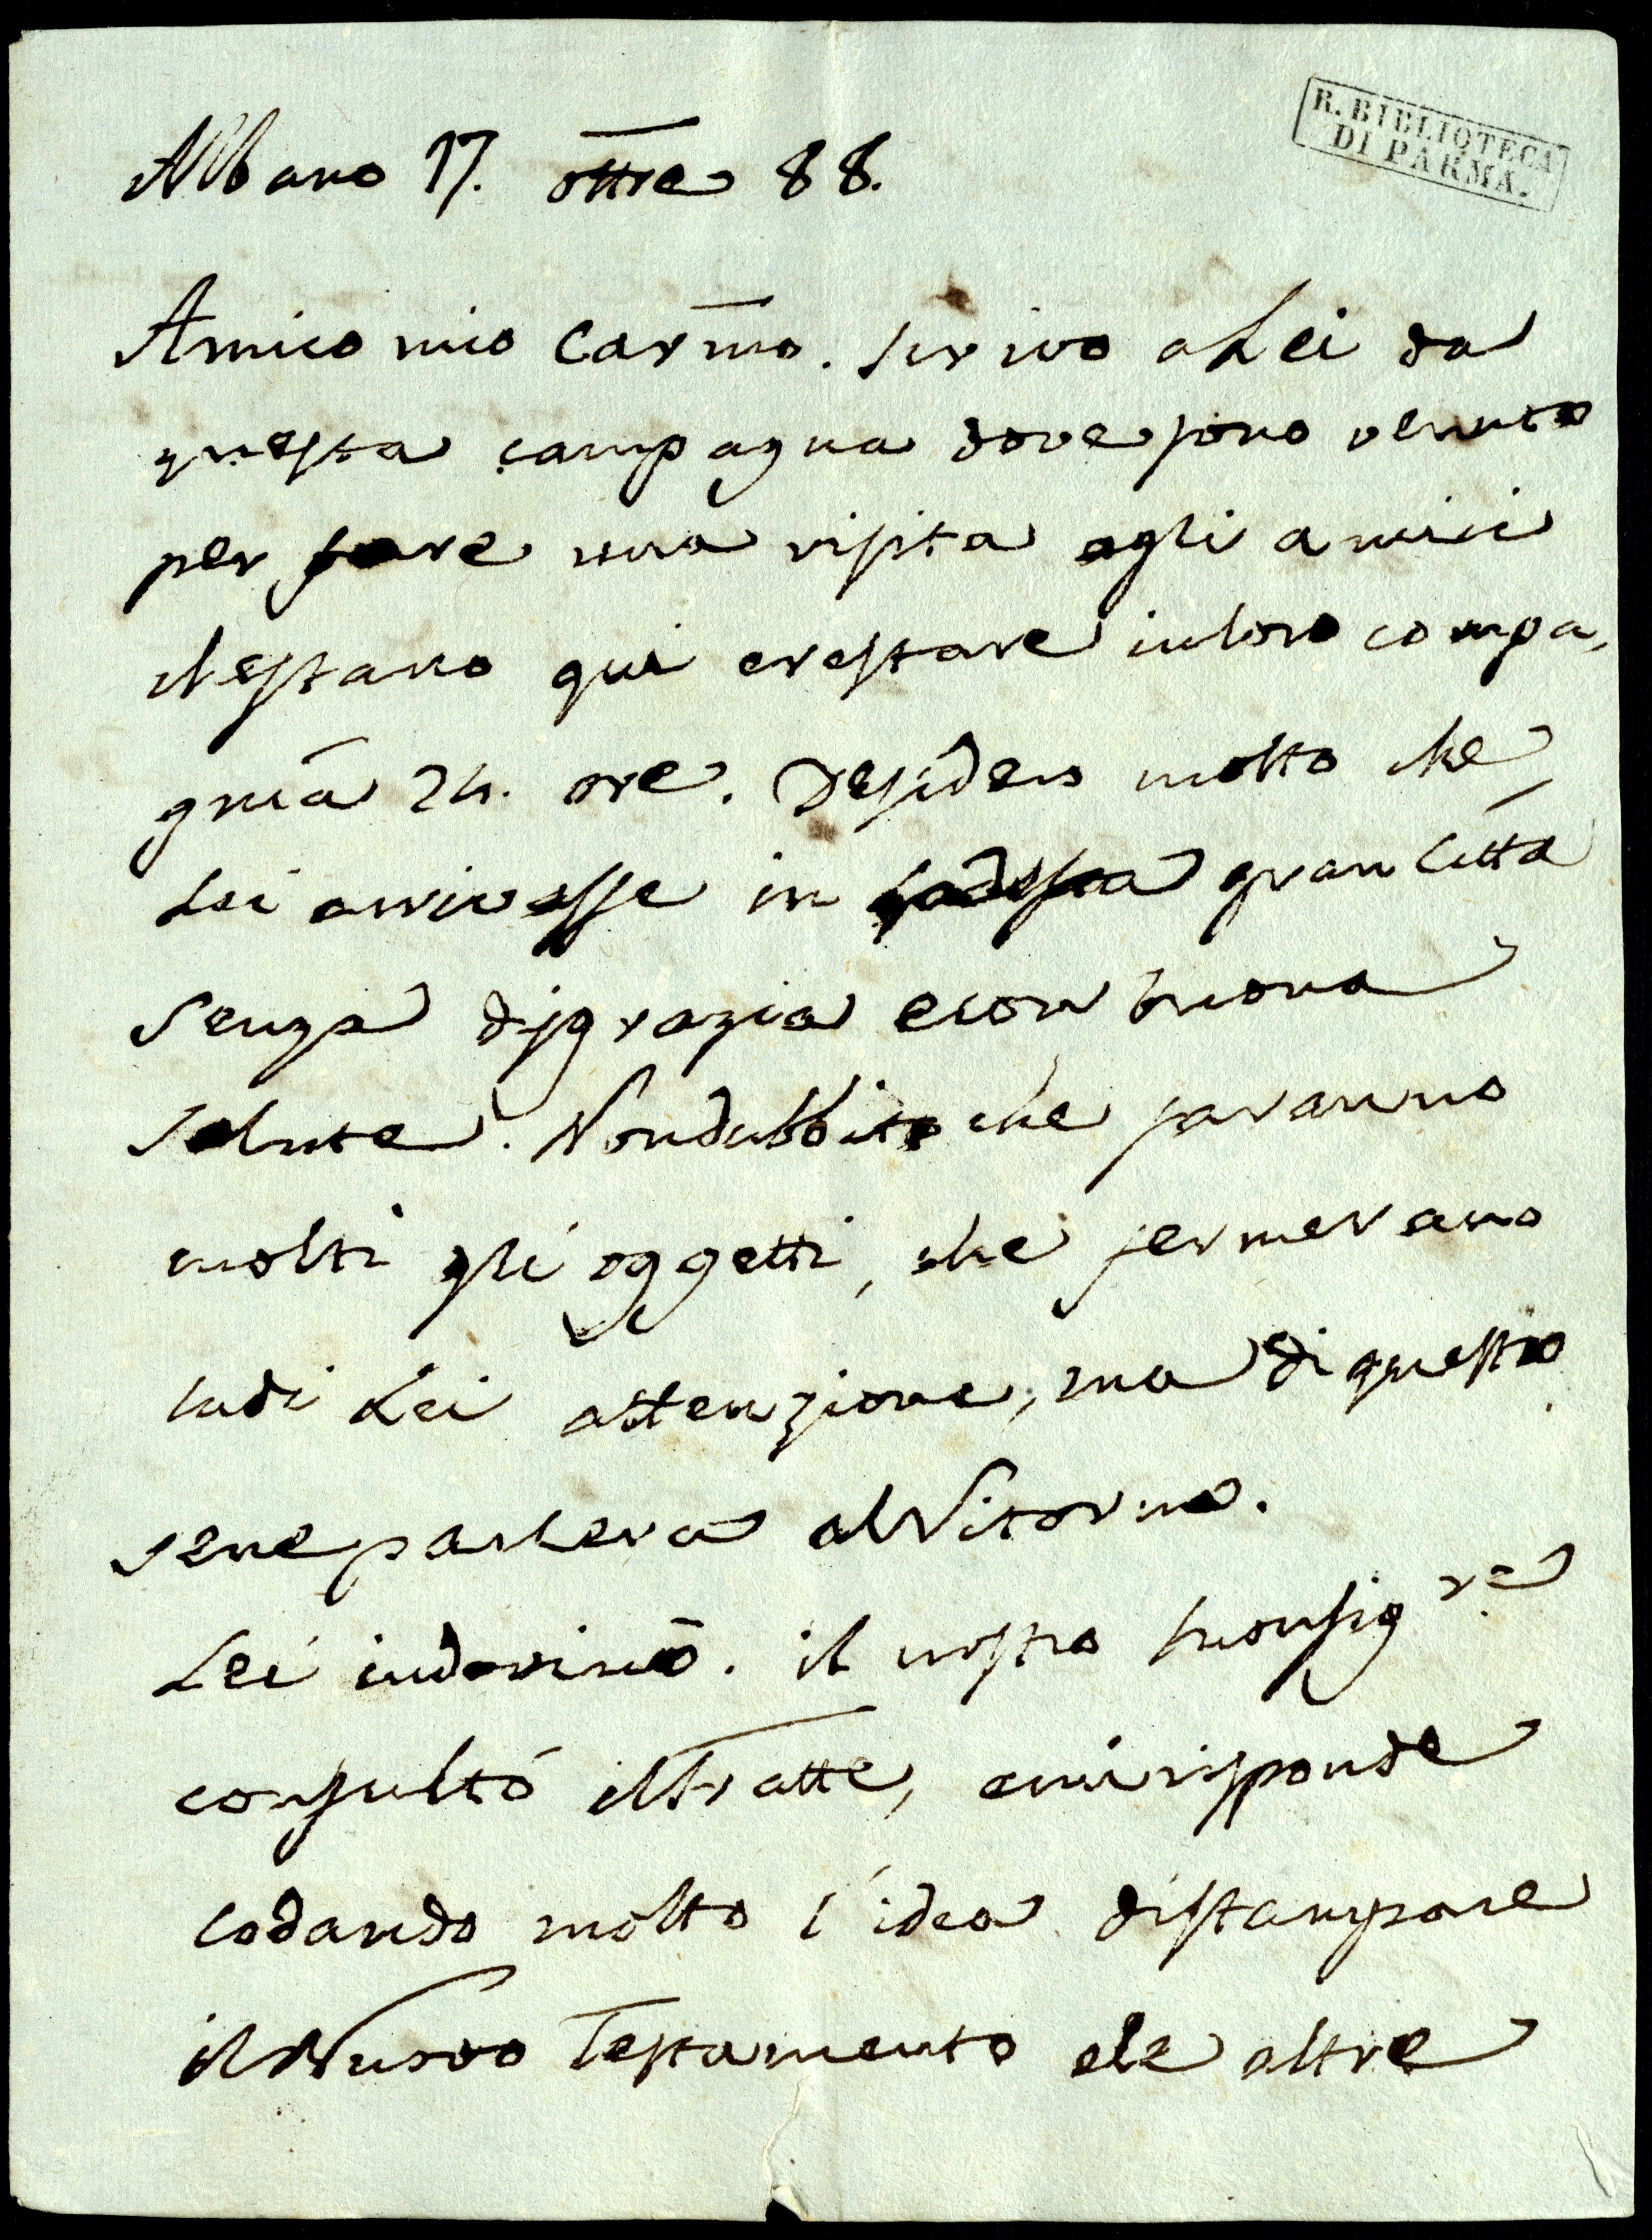 R. BIBLIOTECA
DI PARMA.
Albano 17. ottre 88.
Amico mio Carmo. scrivo a Lei da
questa campagna dove sono venuto
per fare una visita agli amici
che stano qui e restare in loro compa,
gnia 24. ore. Desidero molto che
Lei arrivasse in gran Città
senza disgrazia e con buona
salute. Non dubbito che saranno
molti gli oggetti, che fermerano
la di Lei attenzione, ma di questo
se ne parlerà al ritorno.
Lei indovinò. il nostro Monsigre
consultò il Fratte, e mi risponde
lodando molto l'idea di stampare
il Nuovo Testamento e le altre